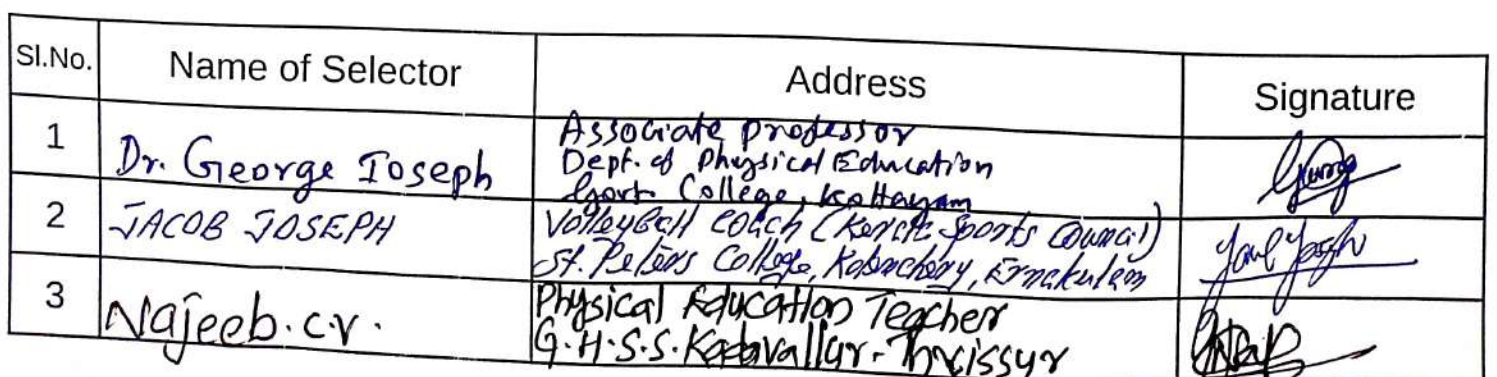 Sl.No. Name of Selector Address Signature
1 Dr. George Joseph Associate professor
Dept. of Physical Education
Govt. College, Kottayam
2 JACOB JOSEPH Volleyball coach (Kerala Sports Council)
St. Peters College, Kolenchery, Ernakulam
3 Najeeb.c.v. Physical Education Teacher
G.H.S.S. Kadavallur - Thrissur